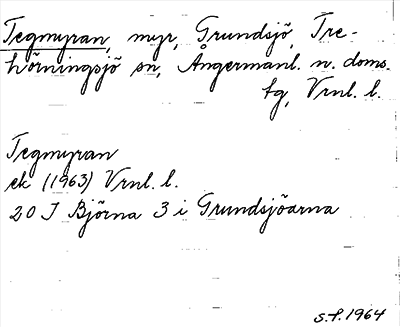 Tegmyran, myr, Grundsjö, Tre-
hörningsjö sn, Ångermanl. n. doms.
tg, Vrnl. l.
Tegmyran
ek (1963) Vrnl. l.
20 J Björna 3 i Grundsjöarna
S.F. 1964